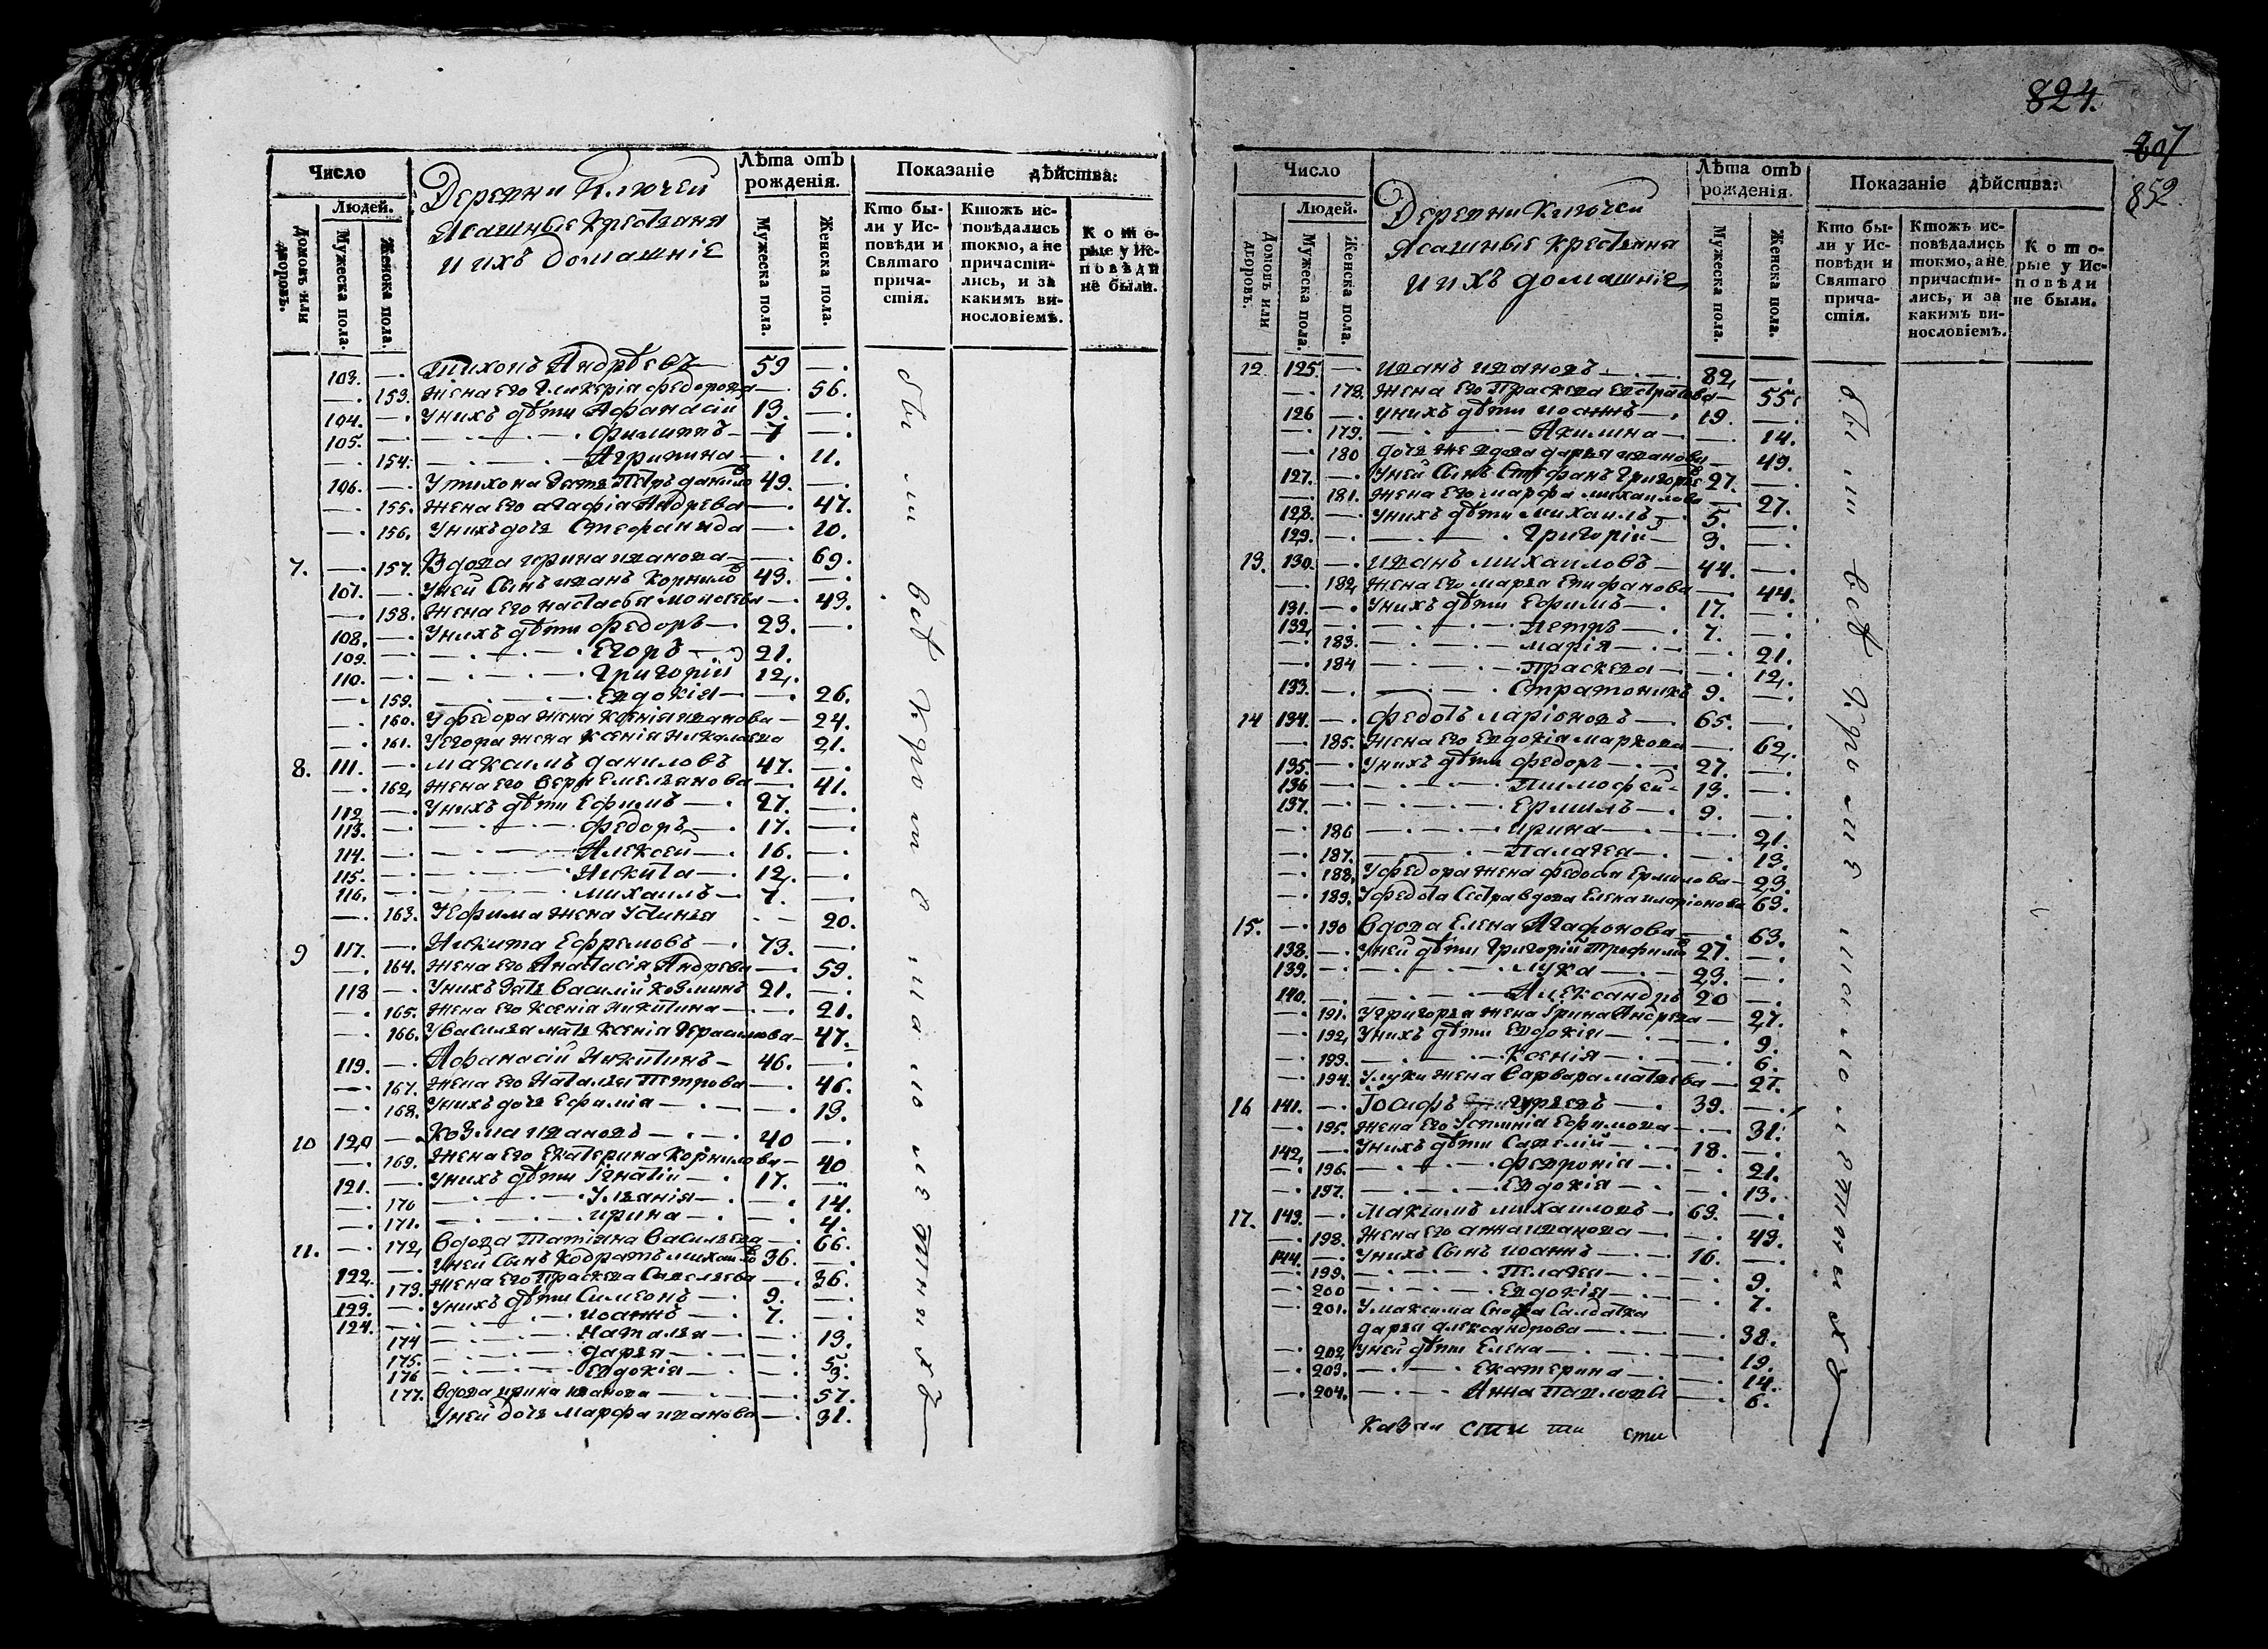 Число
Людей.
Домовъ или дворовъ.
Мужеска пола.
Женска пола.
Деревни Ключей
Ясашные крестьяня
и ихъ домашніе
Лѣта отъ рожденія.
Мужеска пола.
Женска пола.
Показаніе дѣйства:
Кто бы-
ли у Ис-
повѣди и
Святаго
прича-
стія.
Ктожъ ис-
повѣдались
токмо, а не
причасти-
лись, и за
какимъ ви-
нословіемъ.
Кото-
рые у Ис-
повѣди
не были.
103. —. Тихонъ Андрѣевъ 59 —.
—. 153. Жена его Гликерія Федорова —. 56.
104. —. У нихъ дѣти Афанасій 13. —.
105. —. Филиппъ 7 —.
—. 154. Агрипина —. 11.
106. —. У тихона зять Петръ данилов 49. —.
—. 155. Жена его агафія Андрева —. 47.
—. 156. У нихъ дочь Стефанида —. 20.
7. —. 157. Вдова ирина иванова —. 69.
107. —. У ней сынъ иванъ Корнилов 43. —.
—. 158. Жена его настасья моисеева —. 43.
108. —. У нихъ дѣти федоръ 23. —.
109. —. Егоръ 21.
110. —. Григорій 12.
—. 159. Евдокія —. 26.
—. 160. У федора жена ксенія иванова — 24.
—. 161. У егора жена ксенія николаева 21.
8. 111. —. максимъ даниловъ 47. —.
—. 162. жена его вера емельянова — 41.
112. —. У нихъ дѣти Ефимъ 27. —.
113. —. федоръ 17. —.
114. —. Алексей 16. —.
115. —. Никита 12. —.
116. —. михаилъ 7. —.
—. 163. У ефима жена устинья —. 20.
9 117. —. Никита Ефремовъ 73. —.
—. 164. жена его Анастасія Андрева —. 59.
118 —. У нихъ зять Василий козминъ 21. —.
—. 165. жена его ксенія никитина —. 21.
—. 166. У василья мать ксенія Герасимова — 47.
119. —. Афанасій Никитинъ 46. —.
—. 167. жена его Наталья Петрова —. 46.
—. 168. У нихъ дочь Ефимія —. 19.
10 120 —. Козма ивановъ 40 —.
—. 169. жена его екатерина корнилова — 40
121. —. У нихъ дѣти Игнатій 17. —.
—. 170 Ульянія —. 14.
—. 171. ирина —. 4.
11. —. 172. вдова татіяна васильева —. 66.
122. —. У ней сынъ Кодратъ михаилов 36. —.
—. 173. жена его праскева савельева —. 36.
123. —. У нихъ дѣти Симеонъ 9. —.
124. —. иоаннъ 7. —.
174 Наталья —. 13.
175. дарья —. 5.
176 Евдокія —. 3.
177. вдова ирина иванова —. 57.
У ней дочь марфа иванова —. 31.
были всѣ кромѣ малолетнихъ
824.
807
852.
Число
Людей.
Домовъ или дворовъ.
Мужеска пола.
Женска пола.
Деревни Ключей
Ясашные крестьяня
и ихъ домашніе
Лѣта отъ рожденія.
Мужеска пола.
Женска пола.
Показаніе дѣйства:
Кто бы-
ли у Ис-
повѣди и
Святаго
прича-
стія.
Ктожъ ис-
повѣдались
токмо, а не
причасти-
лись, и за
какимъ ви-
нословіемъ.
Кото-
рые у Ис-
повѣди
не были.
12. 125. —. иванъ ивановъ 82 —.
—. 178. жена его Праскева Евстратова — 55.
126 —. У нихъ дѣти иоаннъ 19. —.
—. 179. Акилина —. 14.
—. 180 дочь же вдова дарья иванова — 49.
127. —. У ней сынъ Стефанъ Григорьев 27. —.
—. 181. жена его марфа михаилова — 27.
128. —. У нихъ дѣти михаилъ 5. —.
129. —. Григорій 3. —.
13. 130. —. иванъ михаиловъ 44. —.
—. 182. жена его марья епифанова — 44.
131. —. У нихъ дѣти Ефимъ 17. —.
132. —. Петръ 7. —.
—. 183. марія —. 21.
—. 184 Праскева —. 12.
133. —. Стратоникъ 9. —.
14 134. —. федотъ ларіоновъ 65. —.
—. 185. жена его евдокія маркова —. 62.
135. —. У нихъ дѣти федоръ 27. —.
136 —. Тимофей 13. —.
137. —. Ермилъ 9. —.
—. 186 ирина —. 21.
—. 187. Палагея —. 13.
—. 188. У федора жена федосья Ермилова — 23.
—. 189. У федота сестра вдова елена иларіонова 63.
15. —. 190 вдова Елена Агафонова —. 63.
138. —. У ней дѣти Григорій трофимов 27. —.
139. —. лука 23. —.
140. —. Александръ 20 —.
—. 191. У григорья жена ірина Андрева — 27.
—. 192. У нихъ дѣти Евдокія —. 9.
—. 193. Ксенія —. 6.
—. 194. У луки жена варвара матвева — 27.
16 141. —. Іосифъ гурьевъ 39. —.
—. 195. жена его Устинія Ефимова —. 31.
142. —. У нихъ дѣти Савелій 18. —.
—. 196. Февронія —. 21.
—. 197. Евдокія —. 13.
17. 143. —. максимъ михаиловъ 63. —.
—. 198. жена его анна иванова —. 43.
144. —. У нихъ сынъ иоаннъ 16. —.
—. 199. Пелагея —. 9.
—. 200 Евдокія —. 7.
—. 201. У максима сноха салдатка
дарья александрова —. 38.
—. 202. У ней дѣти Елена —. 19.
—. 203. Екатерина —. 14.
—. 204. Анна Павлова —. 6.
были всѣ кромѣ малолетнихъ